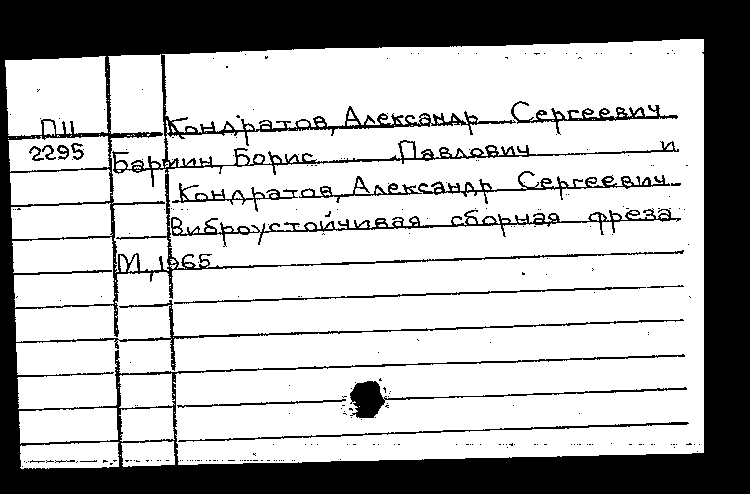 П11 Кондратов, Александр Сергеевич
2295 Бармин, Борис Павлович и
Кондратов, Александр Сергеевич
Виброустойчивая сборная фреза
М., 1965